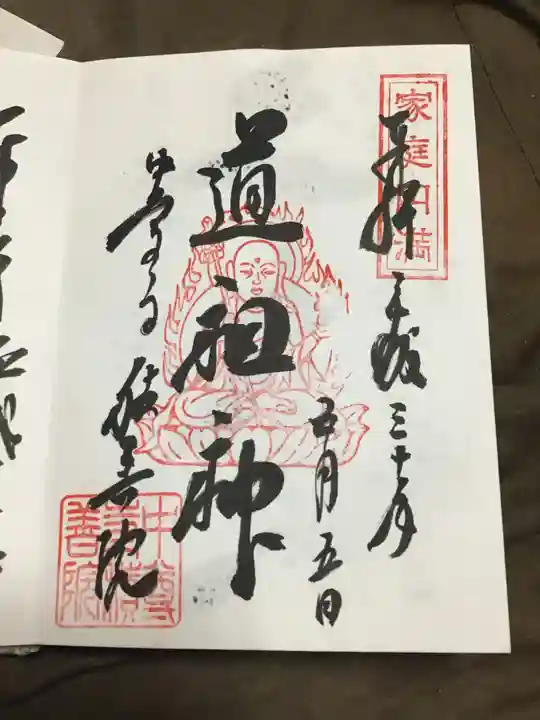 家庭円満
奉拝 平成三十年
五月五日
道祖神
中尊寺 積善院
中尊
寺積
善院